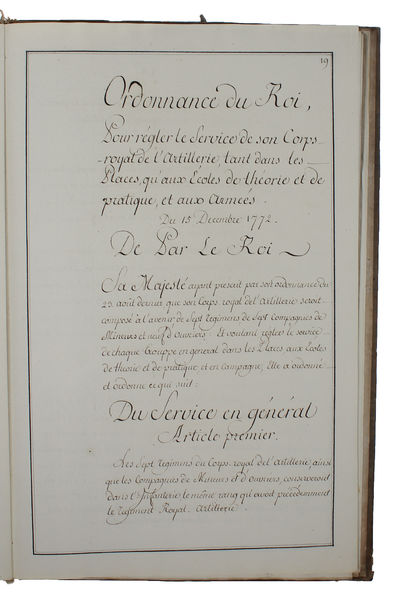 19
Ordonnance du Roi,
Pour régler le Service de son Corps-
-royal de l'Artillerie, tant dans les
Places, qu'aux Écoles de théorie et de
pratique, et aux Armées.
Du 15 Decembre 1772.
De Par Le Roi
Sa Majesté ayant prescrit par son ordonnance du
23 août dernier que son Corps royal de l'Artillerie seroit
composé à l'avenir de Sept Regimens de Sept Compagnies de
Mineurs et neuf d'Ouvriers. Et voulant regler le service
de chaque Trouppe en general dans les Places aux Ecoles
de theorie et de pratique et en campagne, Elle a ordonné
et ordonne ce qui suit:
Du Service en général
Article premier.
Les Sept Regimens du Corps royal de l'Artillerie, ainsi
que les Compagnies de Mineurs et d'Ouvriers, conserveront
dans l'Infanterie le même rang qu'avoit précédemment
le Regiment Royal-Artillerie.